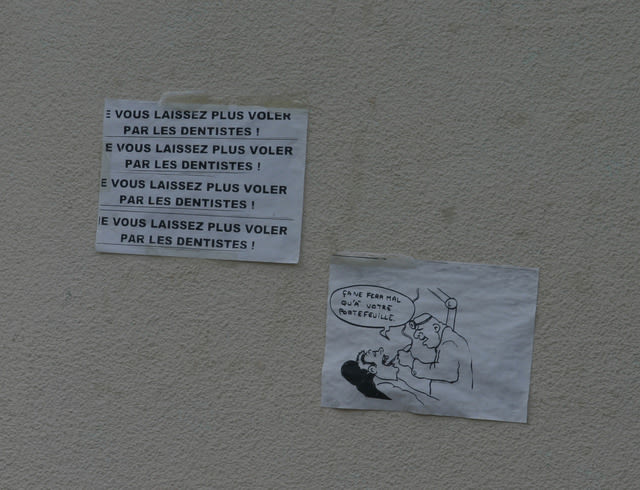 E VOUS LAISSEZ PLUS VOLER
PAR LES DENTISTES !
E VOUS LAISSEZ PLUS VOLER
PAR LES DENTISTES !
E VOUS LAISSEZ PLUS VOLER
PAR LES DENTISTES !
E VOUS LAISSEZ PLUS VOLER
PAR LES DENTISTES !
ÇA NE FERA MAL
QU'À VOTRE
PORTEFEUILLE.